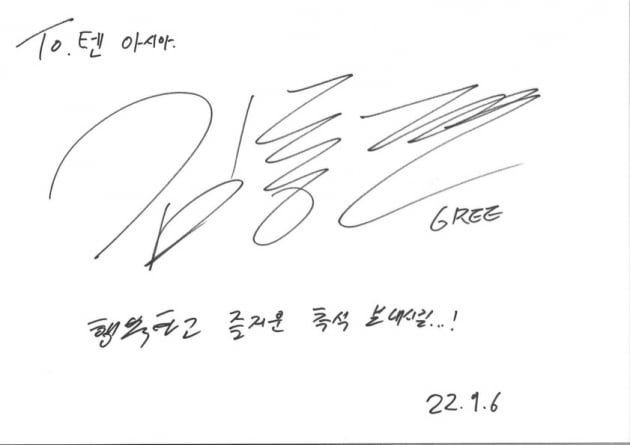 To. 텐아시아.
김동현
GREE
행복하고 즐거운 추석 보내시길...!
22.9.6